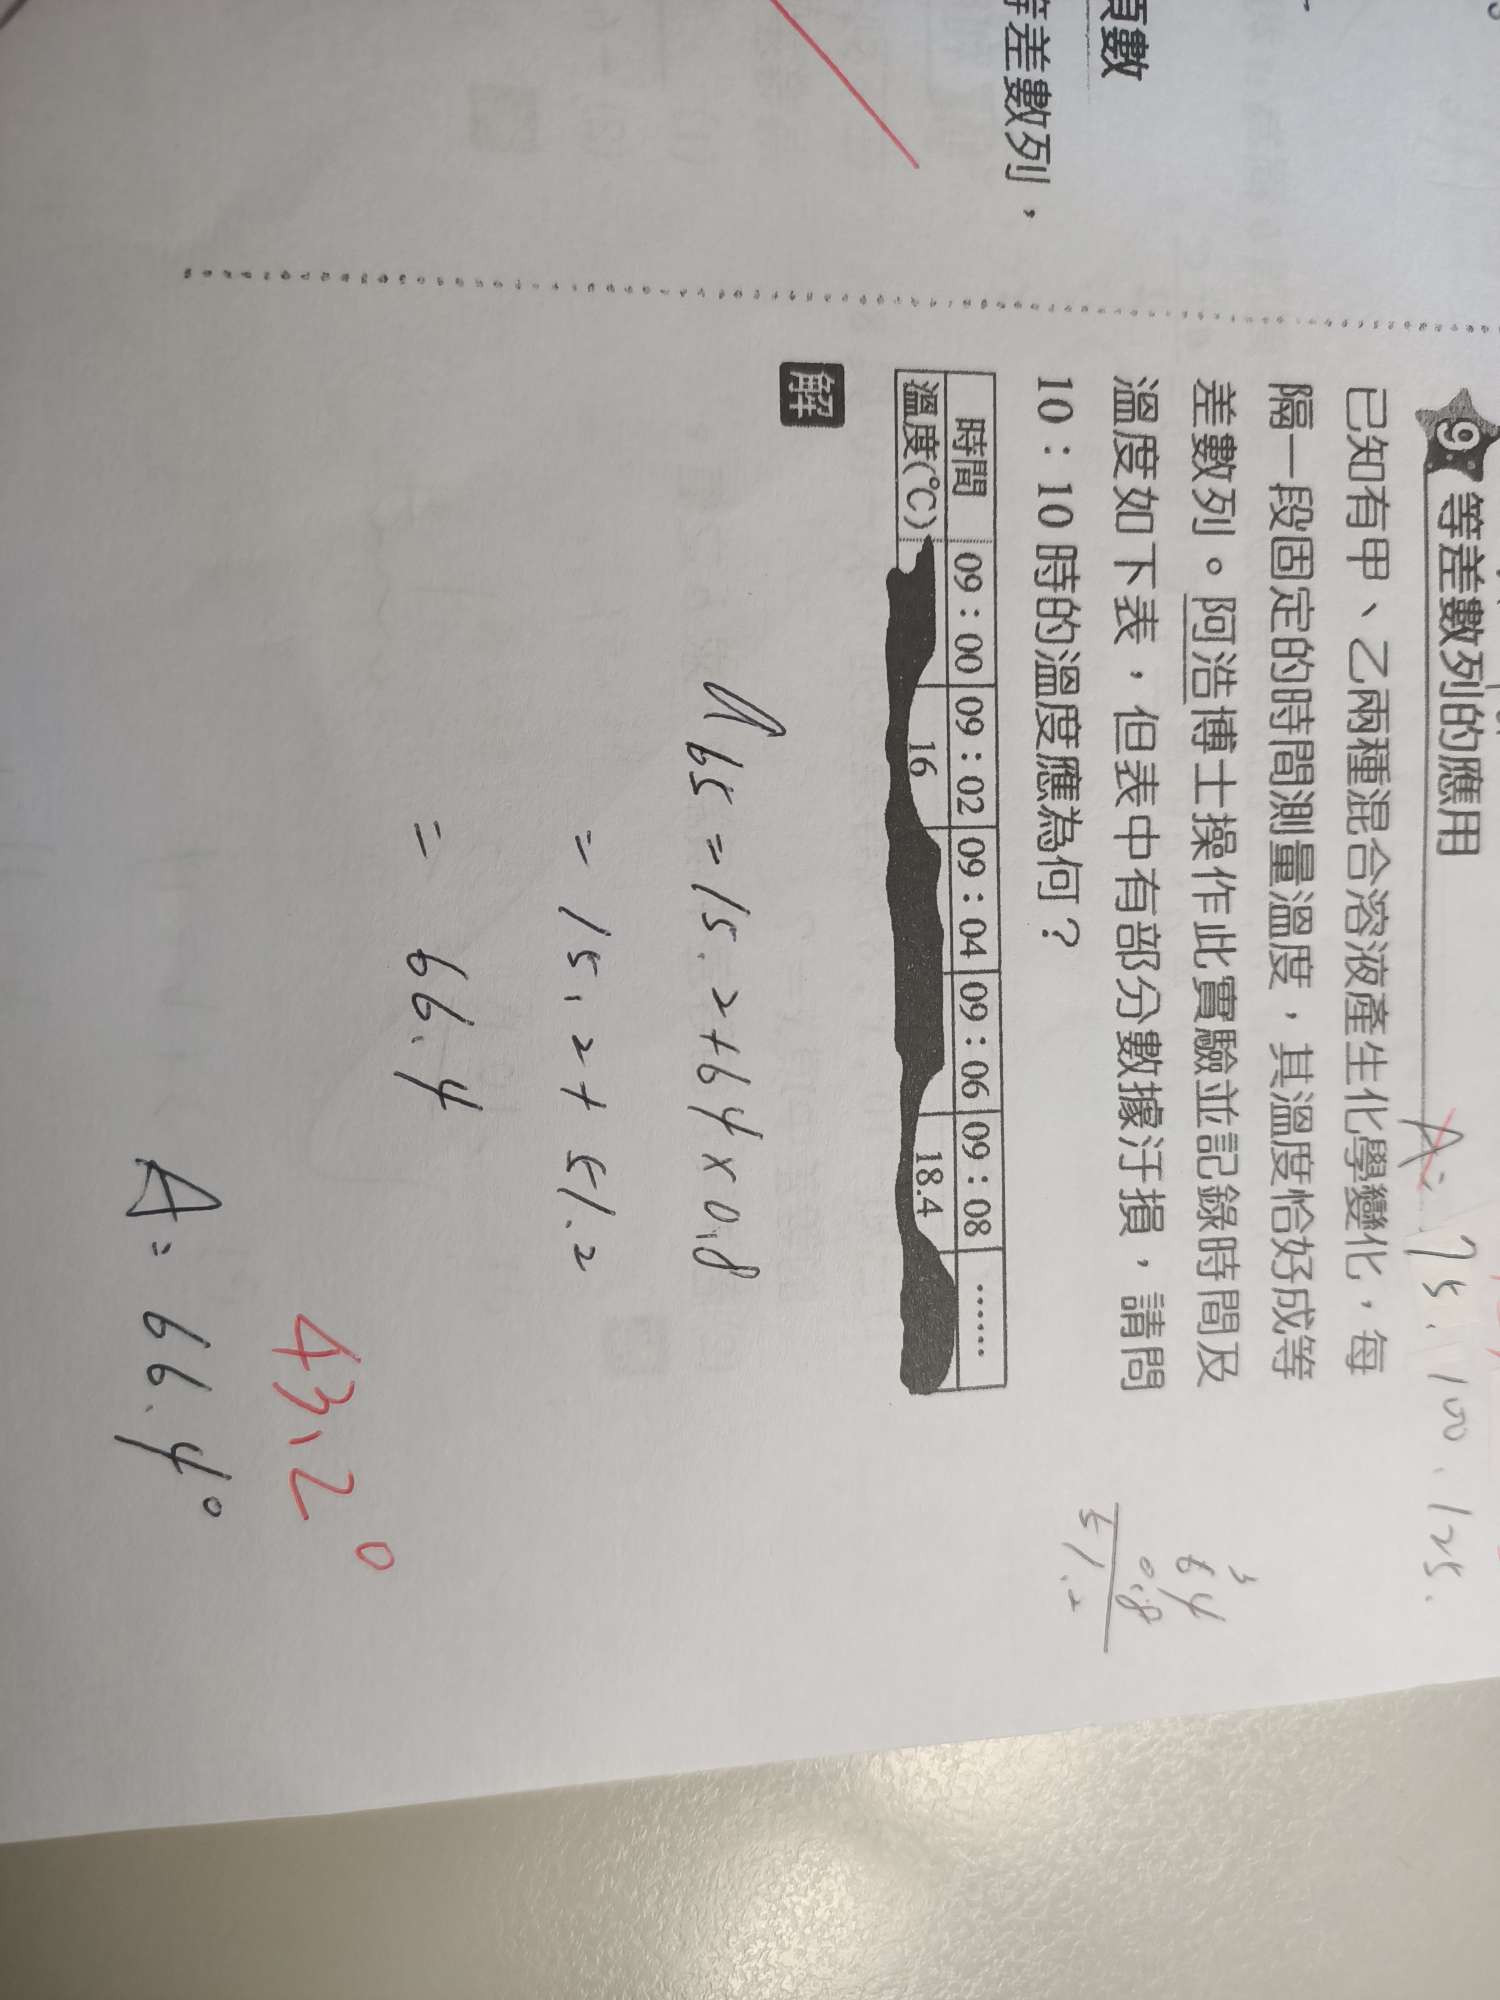 頁數
等差數列，
9 等差數列的應用
A: 75.100.125.
已知有甲、乙兩種混合溶液產生化學變化，每
隔一段固定的時間測量溫度，其溫度恰好成等
差數列。阿浩博士操作此實驗並記錄時間及
溫度如下表，但表中有部分數據汙損，請問
10：10 時的溫度應為何？
時間 09：00 09：02 09：04 09：06 09：08 ……
溫度(℃) 16 18.4
解
3
64
0.8
51.2
a65=15.2+64×0.8
=15.2+51.2
=66.4
43.2°
A=66.4°